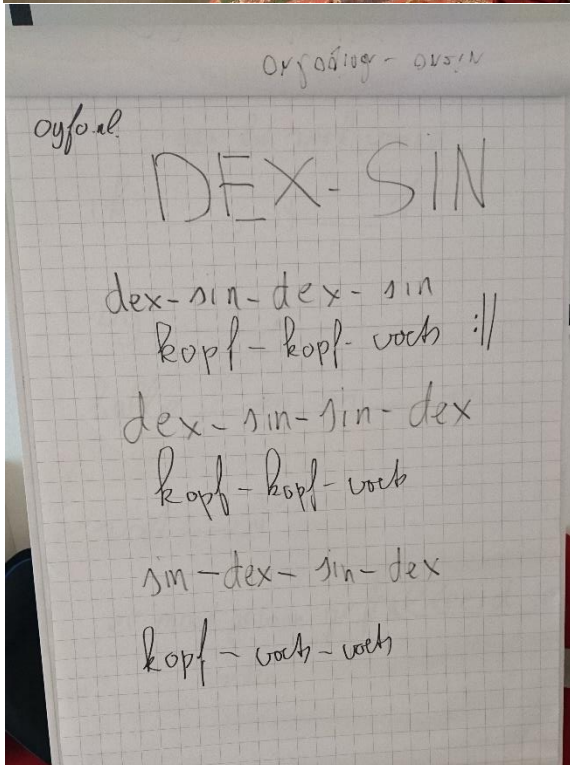 DEX-SIN
dex-sin-dex-sin
kopf-kopf-voch :||
dex-sin-sin-dex
kopf-kopf-voch
sin-dex-sin-dex
kopf-voch-voch